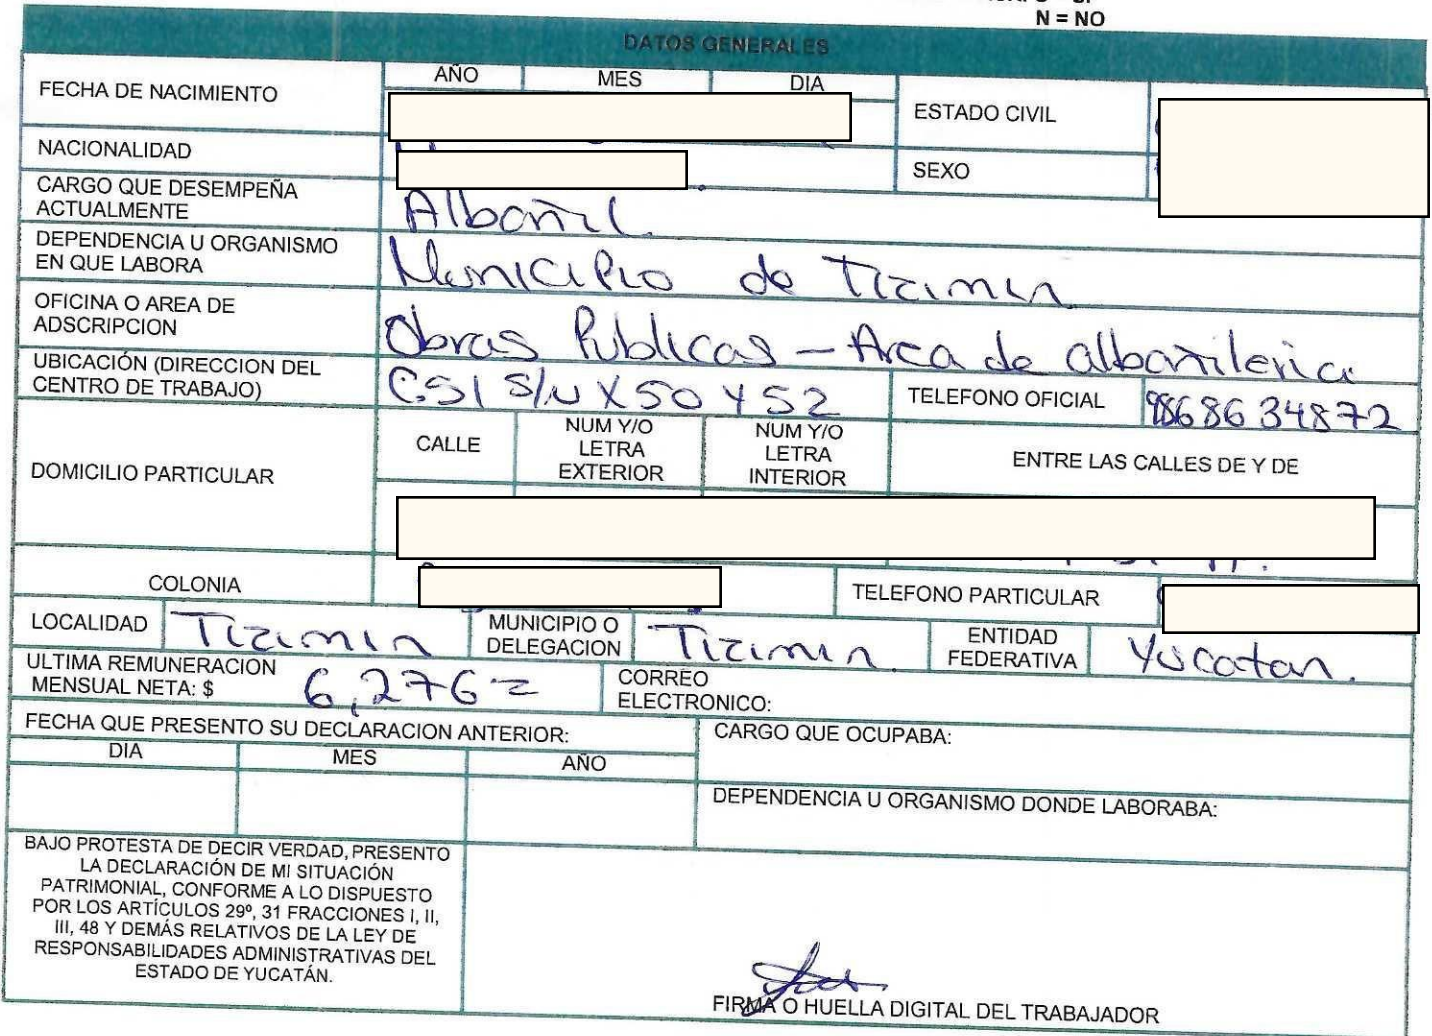 N = NO
DATOS GENERALES
FECHA DE NACIMIENTO
AÑO MES DIA
ESTADO CIVIL
NACIONALIDAD
SEXO
CARGO QUE DESEMPEÑA
ACTUALMENTE
Albañil
DEPENDENCIA U ORGANISMO
EN QUE LABORA
Municipio de Tizimin
OFICINA O AREA DE
ADSCRIPCION
Obras Publicas - Area de albañileria
UBICACIÓN (DIRECCION DEL
CENTRO DE TRABAJO)
C51 S/N X50 Y 52
TELEFONO OFICIAL
9868634872
DOMICILIO PARTICULAR
CALLE
NUM Y/O
LETRA
EXTERIOR
NUM Y/O
LETRA
INTERIOR
ENTRE LAS CALLES DE Y DE
COLONIA
TELEFONO PARTICULAR
LOCALIDAD
Tizimin
MUNICIPIO O
DELEGACION
Tizimin.
ENTIDAD
FEDERATIVA
Yucatan.
ULTIMA REMUNERACION
MENSUAL NETA: $
6,276=
CORREO
ELECTRONICO:
FECHA QUE PRESENTO SU DECLARACION ANTERIOR:
CARGO QUE OCUPABA:
DIA MES AÑO
DEPENDENCIA U ORGANISMO DONDE LABORABA:
BAJO PROTESTA DE DECIR VERDAD, PRESENTO
LA DECLARACIÓN DE MI SITUACIÓN
PATRIMONIAL, CONFORME A LO DISPUESTO
POR LOS ARTÍCULOS 29º, 31 FRACCIONES I, II,
III, 48 Y DEMÁS RELATIVOS DE LA LEY DE
RESPONSABILIDADES ADMINISTRATIVAS DEL
ESTADO DE YUCATÁN.
FIRMA O HUELLA DIGITAL DEL TRABAJADOR